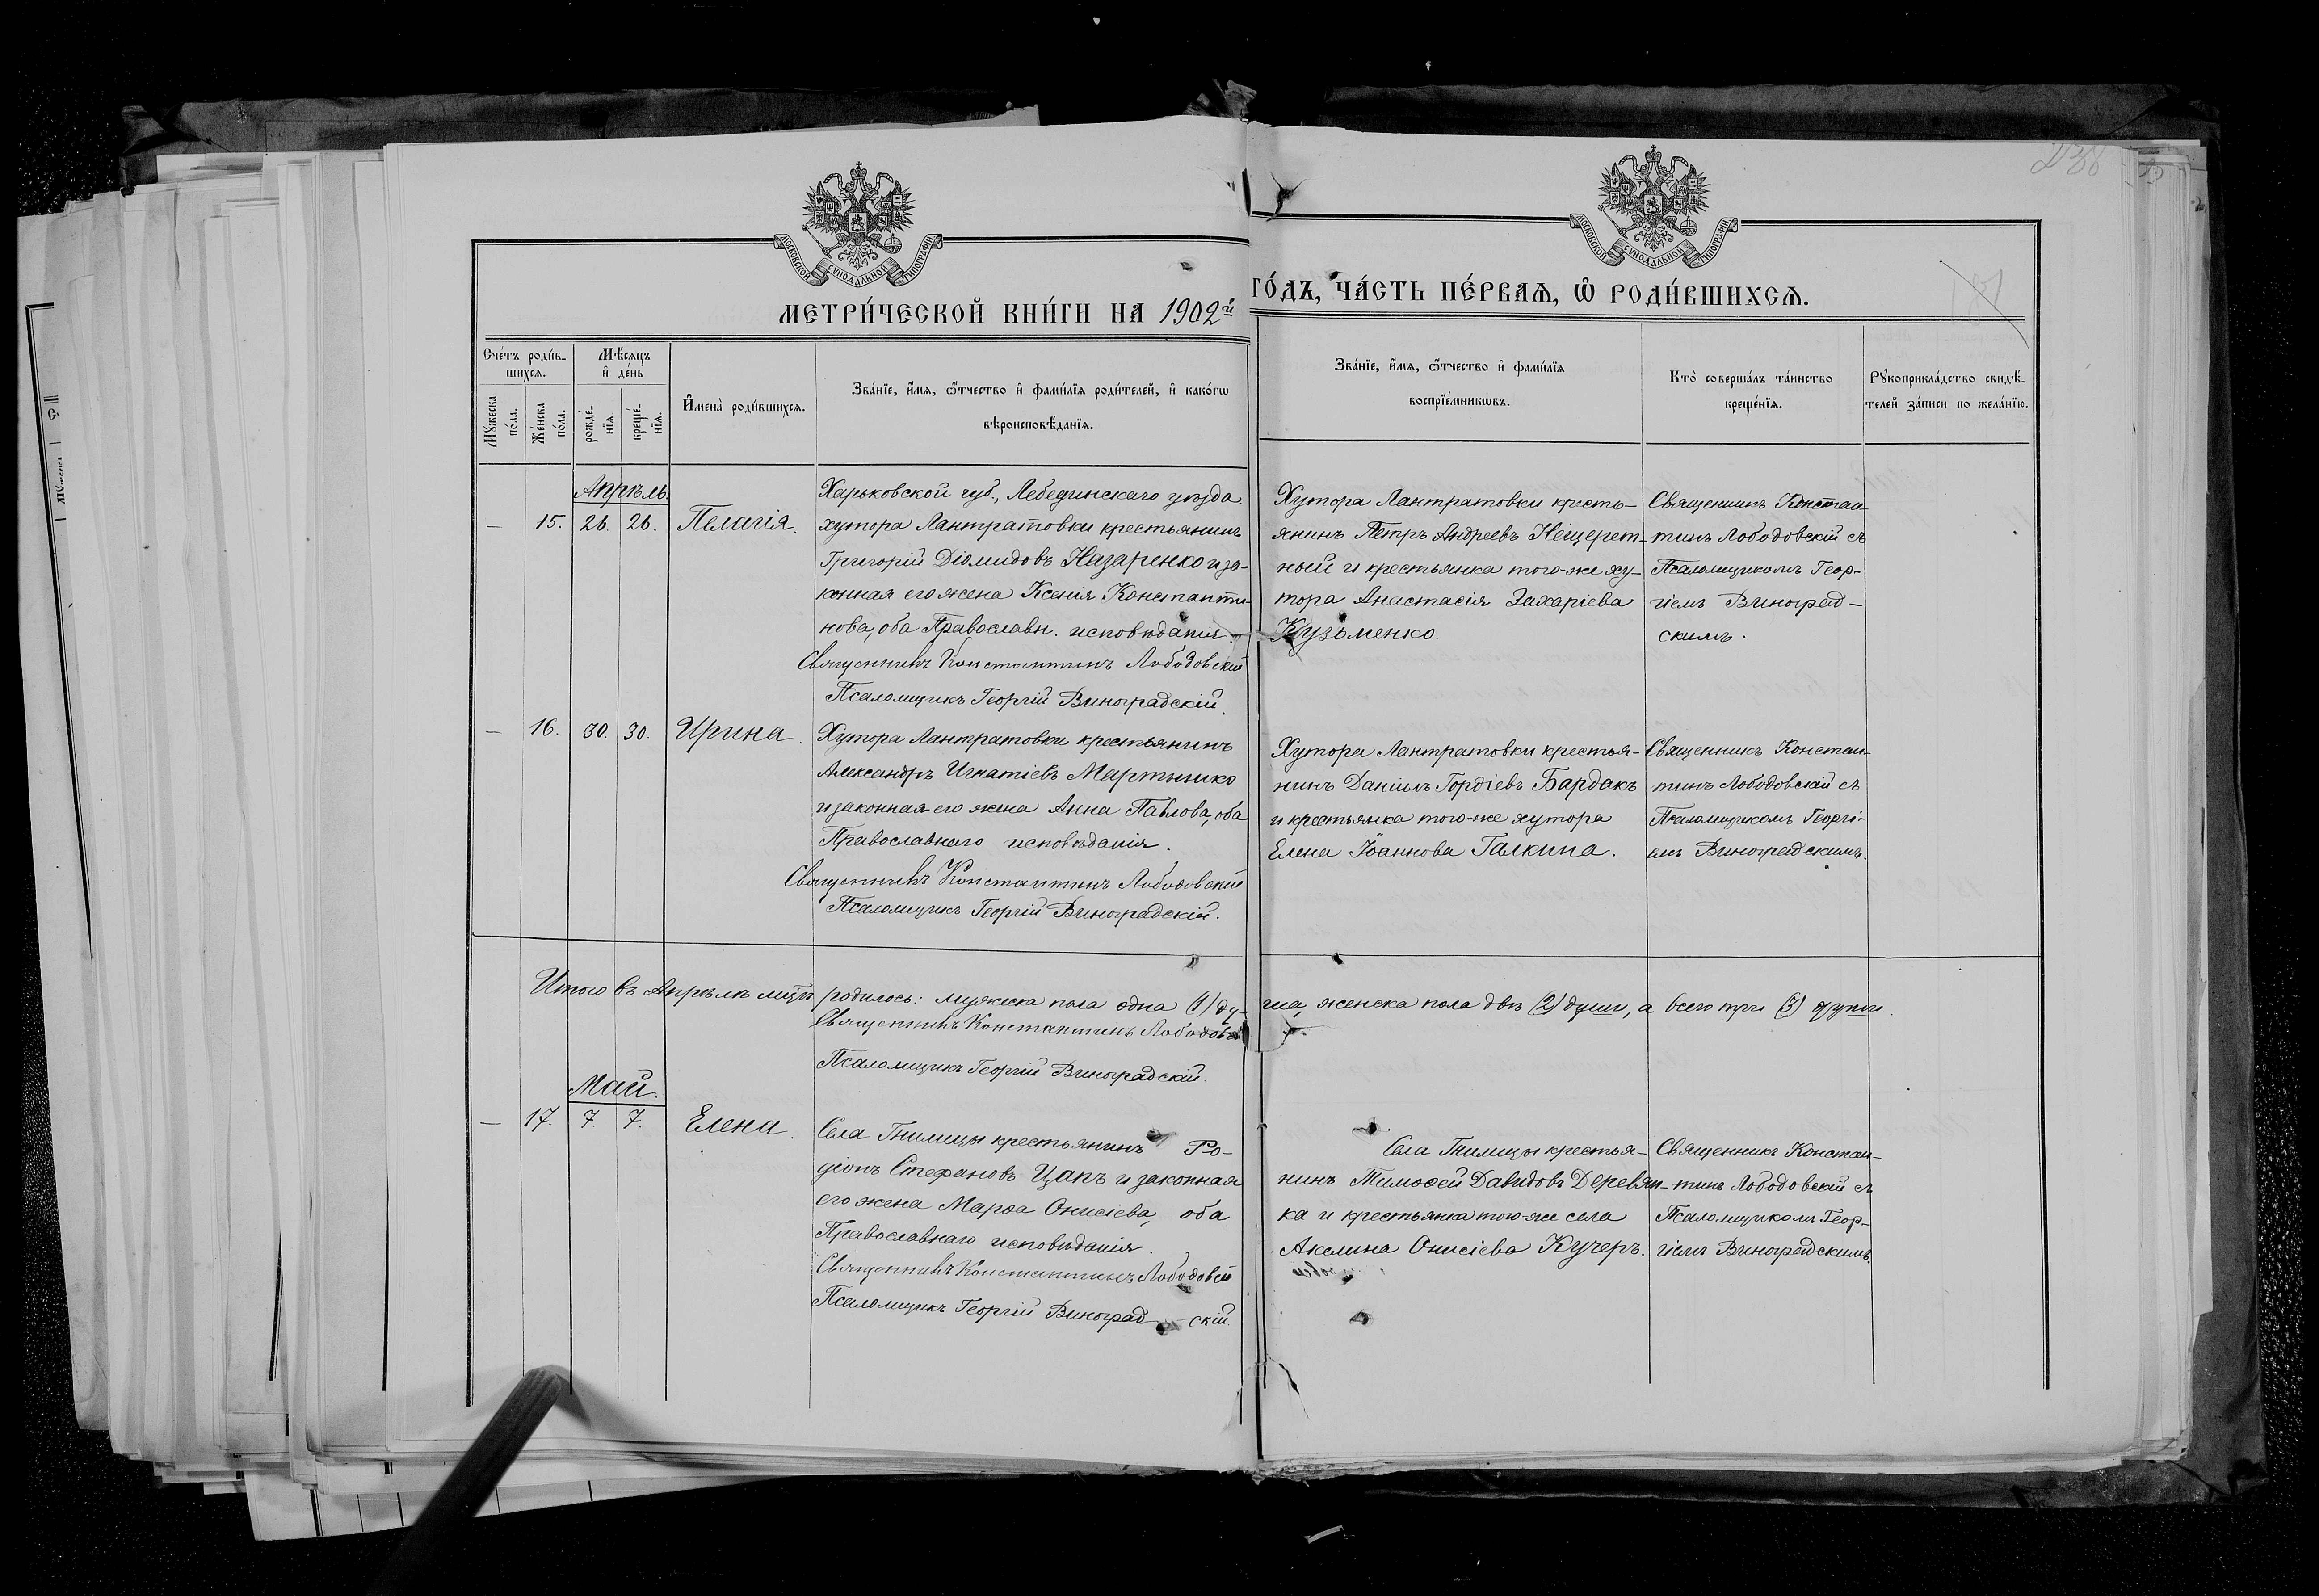 238
МОСКОВСКОЙ СѴНОДАЛЬНОЙ ТИПОГРАФІИ
МОСКОВСКОЙ СѴНОДАЛЬНОЙ ТИПОГРАФІИ
МЕТРИ́ЧЕСКОЙ КНИ́ГИ НА 1902й
ГО́ДЪ, ЧА́СТЬ ПЕ́РВАѦ, Ѿ РОДИ́ВШИХСѦ.
Сче́тъ роди́в-
шихсѧ.
Мꙋ́жеска по́ла.
Же́нска по́ла.
Мѣ́сѧцъ
и҆ де́нь
рожде́-нїѧ.
креще́-нїѧ.
И҆мена̀ роди́вшихсѧ.
Зва́нїе, и҆́мѧ, ѻ҆́тчество и҆ фами́лїѧ роди́телей, и҆ како́гѡ
вѣроисповѣ́данїѧ.
Зва́нїе, и҆́мѧ, ѻ҆́тчество и҆ фами́лїѧ
воспрїе́мникѡвъ.
Кто̀ соверша́лъ та́инство
креще́нїѧ.
Рꙋкоприкла́дство свидѣ́-
телей за́писи по жела́нїю.
Апрѣль.
— 15. 26. 26. Пелагія.
Харьковской губ., Лебединскаго уѣзда
хутора Лантратовки крестьянинъ
Григорій Діомидовъ Назаренко и за-
конная его жена Ксенія Константи-
нова, оба Православн. исповѣданія.
Священникъ Константинъ Лободовскій
Псаломщикъ Георгій Виноградскій.
Хутора Лантратовки кресть-
янинъ Петръ Андреевъ Нещерет-
ный и крестьянка того-же ху-
тора Анастасія Захаріева
Кузьменко.
Священникъ Констан-
тинъ Лободовскій съ
Псаломщикомъ Геор-
гіемъ Виноград-
скимъ.
— 16. 30. 30. Ирина.
Хутора Лантратовки крестьянинъ
Александръ Игнатіевъ Мартынко
и законная его жена Анна Павлова, оба
Православнаго исповѣданія.
Священникъ Константинъ Лободовскій
Псаломщикъ Георгій Виноградскій.
Хутора Лантратовки крестья-
нинъ Даніилъ Гордіевъ Бардакъ
и крестьянка того-же хутора
Елена Іоаннова Галкина.
Священникъ Констан-
тинъ Лободовскій съ
Псаломщикомъ Георгі-
емъ Виноградскимъ.
Итого въ Апрѣлѣ мцѣ родилось: мужеска пола одна (1) ду-ша, женска пола двѣ (2) души, а всего три (3) души.
Священникъ Константинъ Лободовскій
Псаломщикъ Георгій Виноградскій.
Май.
— 17. 7. 7. Елена.
Села Гнилицы крестьянинъ Ро-
діонъ Стефановъ Цапъ и законная
его жена Марѳа Онисіева, оба
Православнаго исповѣданія.
Священникъ Константинъ Лободовскій
Псаломщикъ Георгій Виноград-скій.
Села Гнилицы крестья-
нинъ Тимоѳей Давидовъ Деревян-
ка и крестьянка того-же села
Акелина Онисіева Кучеръ.
Священникъ Констан-
тинъ Лободовскій съ
Псаломщикомъ Геор-
гіемъ Виноградскимъ.